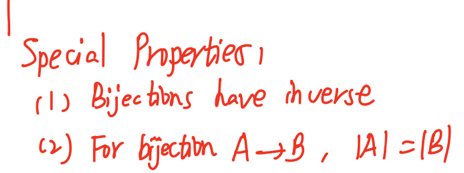 Special Properties:
(1) Bijections have inverse
(2) For bijection A→B, |A|=|B|